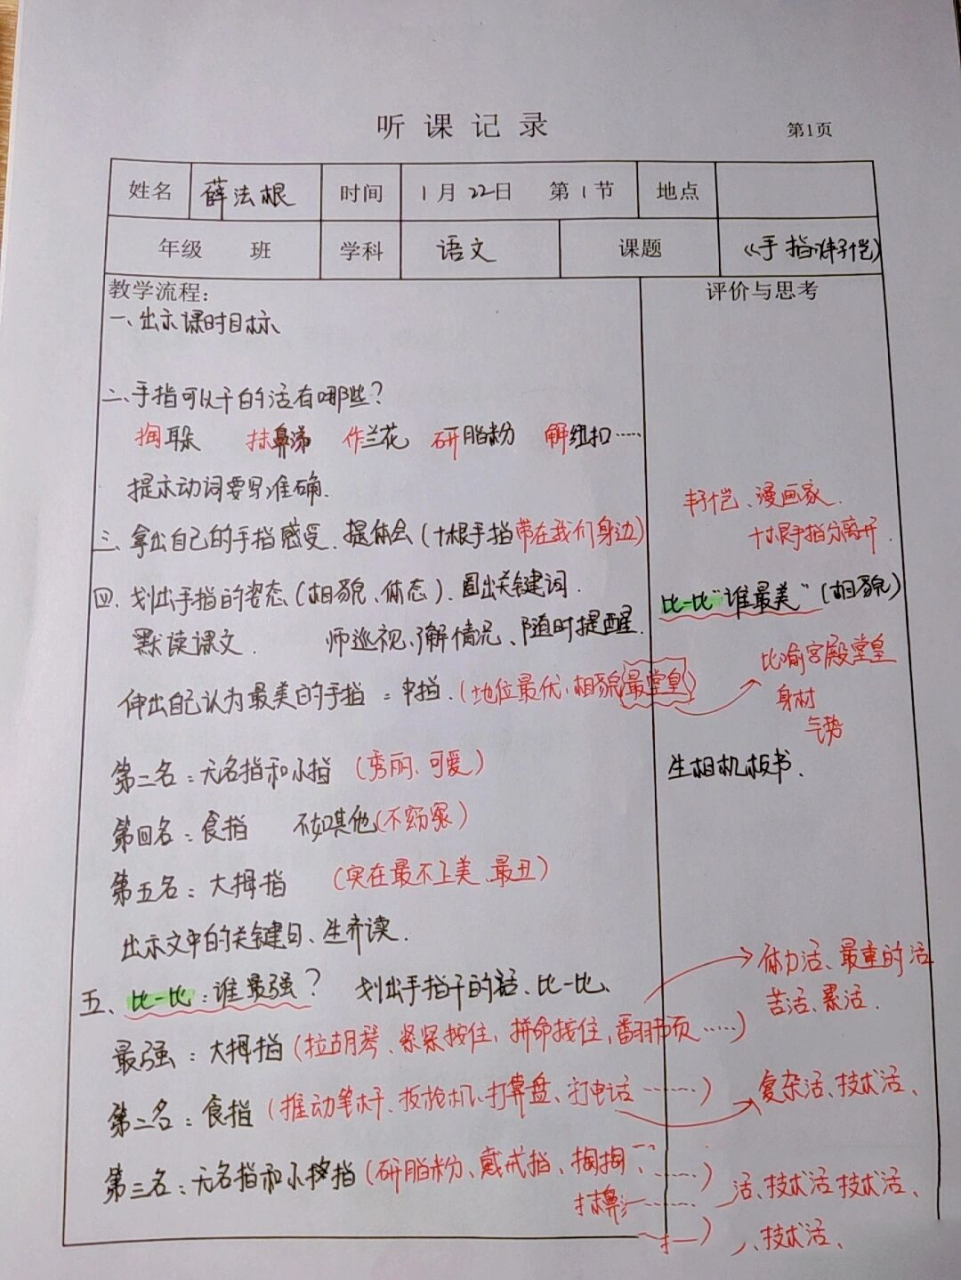 听课记录
第1页
姓名 薛法根 时间 1月22日 第1节 地点
年级 班 学科 语文 课题 《手指》丰子恺
教学流程: 评价与思考
一、出示课时目标
二、手指可以干的活有哪些?
掏耳朵 抹鼻涕 作兰花 研脂粉 解纽扣……
提示动词要写准确.
丰子恺、漫画家.
三、拿出自己的手指感受.提体会(十根手指带在我们身边)
十根手指分离开.
四.划出手指的姿态(相貌、体态).圈出关键词.
比一比“谁最美”(相貌)
默读课文. 师巡视,了解情况、随时提醒.
伸出自己认为最美的手指:中指.(地位最优,相貌最堂皇)
比喻宫殿堂皇
身材
气势
第二名:无名指和小指(秀丽、可爱)
生相机板书.
第四名:食指 不如其他(不窈窕)
第五名:大拇指 (实在最不上美、最丑)
出示文中的关键句、生齐读.
五、比一比:谁最强? 划出手指干的活、比一比、
体力活、最重的活
苦活、累活.
最强:大拇指(拉胡琴、紧紧按住,拼命按住,翻书页……)
第二名:食指(推动笔杆、扳枪机、打算盘、打电话……)
复杂活、技术活、
第三名:无名指和小指(研脂粉、戴戒指、……)
活、技术活技术活、
抹鼻……
、技术活、